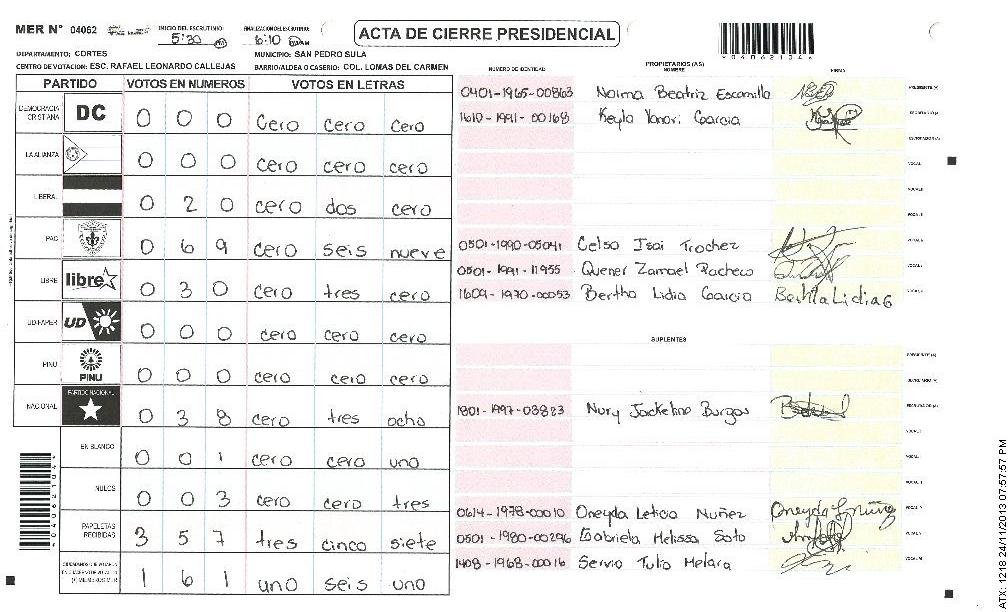 MER N° 04062
INICIO DEL ESCRUTINIO:
5:30
FINALIZACION DEL ESCRUTINIO:
6:10
ACTA DE CIERRE PRESIDENCIAL
DEPARTAMENTO: CORTES
MUNICIPIO: SAN PEDRO SULA
CENTRO DE VOTACION: ESC. RAFAEL LEONARDO CALLEJAS
BARRIO/ALDEA O CASERIO: COL. LOMAS DEL CARMEN
PARTIDO VOTOS EN NUMEROS VOTOS EN LETRAS
DEMOCRACIA CRISTIANA DC 0 0 0 cero cero cero
LA ALIANZA 0 0 0 cero cero cero
LIBERAL 0 2 0 cero dos cero
PAC 0 6 9 cero seis nueve
LIBRE libre 0 3 0 cero tres cero
UD/FAPER UD 0 0 0 cero cero cero
PINU PINU 0 0 0 cero cero cero
NACIONAL PARTIDO NACIONAL 0 3 8 cero tres ocho
EN BLANCO 0 0 1 cero cero uno
NULOS 0 0 3 cero cero tres
PAPELETAS RECIBIDAS 3 5 7 tres cinco siete
1 6 1 uno seis uno
NUMERO DE IDENTIDAD PROPIETARIOS (AS) NOMBRE FIRMA
0401-1965-00863 Norma Beatriz Escamilla
1610-1991-00168 Keyla Yanori Garcia
0501-1990-05041 Celso Isai Trochez
0501-1991-11955 Quener Zamael Pacheco
1609-1970-00053 Bertha Lidia Garcia Bertha Lidia G
SUPLENTES
1801-1997-03823 Nury Jackeline Burgos
0614-1978-00010 Oneyda Leticia Nuñez
0501-1980-00296 Gabriela Melissa Soto
1408-1968-00016 Servio Tulio Melara
ATX: 1218 24/11/2013 07:57:57 PM